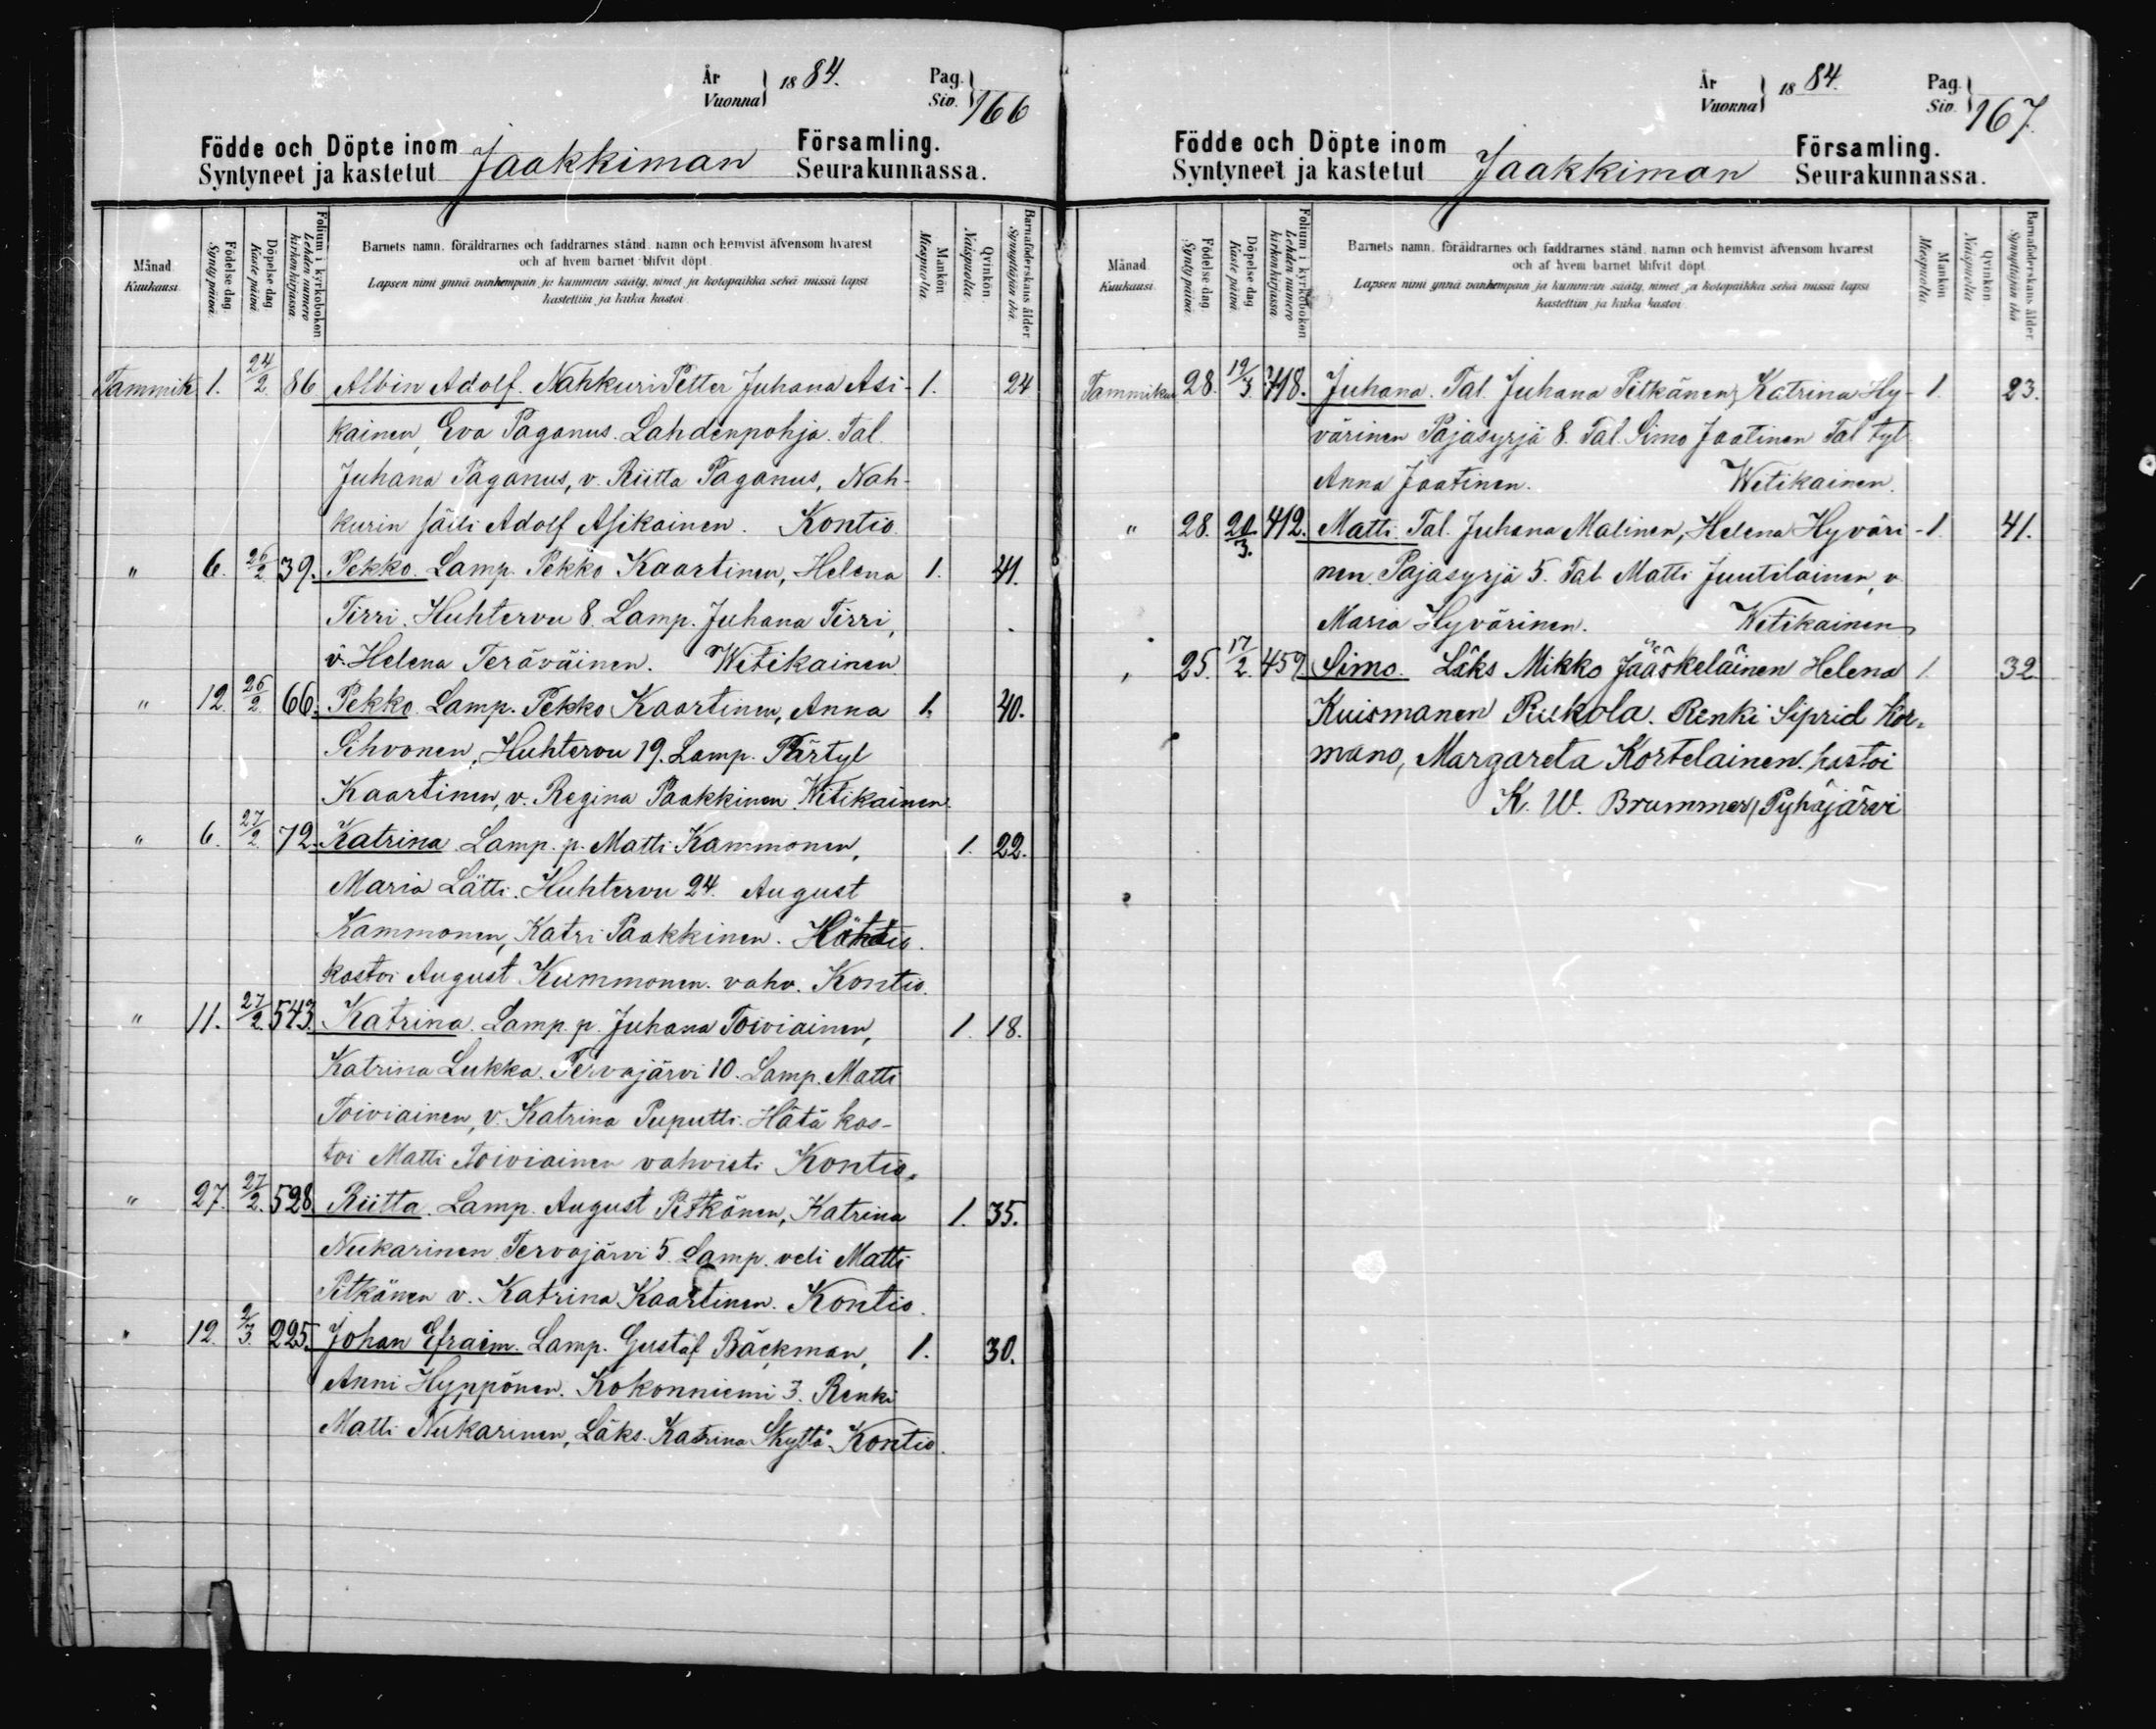 År
Vuonna } 1884. Pag.
Siv. } 166
Födde och Döpte inom Jaakkiman Församling.
Syntyneet ja kastetut Seurakunnassa.
Månad.
Kuukausi.
Födelse dag.
Synty päivä.
Döpelse dag
Kaste päivä.
Folium i kyrkoboken
Lehden numero
kirkonkirjassa.
Barnets namn, föräldrarnes och faddrarnes stånd, namn och hemvist äfvensom hvarest
och af hvem barnet blifvit döpt.
Lapsen nimi ynnä vanhempain ja kummein sääty, nimet ja kotopaikka sekä missä lapsi
kastettiin ja kuka kastoi.
Mankön
Miespuolia.
Qvinkön
Naispuolia
Barnaföderskans ålder
Synnyttäjän ikä.
Tammik. 1. 24/2. 86 Albin Adolf. Nahkuri Petter Juhana Asi- 1. 24
kainen, Eva Paganus. Lahdenpohja. Tal.
Juhana Paganus, v. Riitta Paganus, Nah-
kurin säili Adolf Asikainen. Kontio.
" 6. 26/2 39. Pekko. Lamp. Pekko Kaartinen, Helena 1. 41.
Tirri. Huhtervu 8. Lamp. Juhana Tirri,
v. Helena Teräväinen. Witikainen.
" 12. 26/2. 66. Pekko. Lamp. Pekko Kaartinen, Anna 1. 40.
Sihvonen, Huhtervu 19. Lamp. Pärtyl
Kaartinen, v. Regina Paakkinen. Witikainen.
" 6. 27/2. 72. Katrina. Lamp. p. Matti Kammonen, 1. 22.
Maria Lätti. Huhtervu 24. August
Kammonen, Katri Paakkinen.
kastoi August Kummonen. vahv. Kontio.
" 11. 27/2. 543. Katrina. Lamp. p. Juhana Toiviainen, 1. 18.
Katrina Lukka. Tervajärvi 10. Lamp. Matti
Toiviainen, v. Katrina Puputti. Hätä kas-
toi Matti Toiviainen vahvisti Kontio.
" 27. 27/2. 528. Riitta. Lamp. August Pitkänen, Katrina 1. 35.
Nukarinen. Tervajärvi 5. Lamp. veli Matti
Pitkänen v. Katrina Kaartinen. Kontio.
" 12. 2/3. 225. Johan Efraim. Lamp. Gustaf Bäckman, 1. 30.
Anni Hyppönen. Kokonniemi 3. Renki
Matti Nukarinen, Läks. Katrina Skyttä. Kontio.
År
Vuonna } 1884. Pag.
Siv. } 167.
Födde och Döpte inom Jaakkiman Församling.
Syntyneet ja kastetut Seurakunnassa.
Månad.
Kuukausi.
Födelse dag.
Synty päivä.
Döpelse dag
Kaste päivä.
Folium i kyrkoboken
Lehden numero
kirkonkirjassa.
Barnets namn, föräldrarnes och faddrarnes stånd, namn och hemvist äfvensom hvarest
och af hvem barnet blifvit döpt.
Lapsen nimi ynnä vanhempain ja kummein sääty, nimet ja kotopaikka sekä missä lapsi
kastettiin ja kuka kastoi.
Mankön
Miespuolia.
Qvinkön
Naispuolia
Barnaföderskans ålder
Synnyttäjän ikä
Tammikuu 28. 19/3. 718. Juhana. Tal. Juhana Pitkänen, Katrina Hy- 1. 23.
värinen Pajasyrjä 8. Tal. Simo Jaatinen Tal tyt
Anna Jaatinen. Witikainen.
" 28. 20/3. 412. Matti. Tal. Juhana Malinen, Helena Hyväri- 1. 41.
nen. Pajasyrjä 5. Tal. Matti Juutilainen, v.
Maria Hyvärinen. Witikainen
" 25. 17/2. 459 Simo. Läks Mikko Jääskeläinen Helena 1. 32
Kuismanen Riekola. Renki Siprid Kor-
mano, Margareta Kortelainen. kastoi
K. W. Brummer, Pyhäjärvi